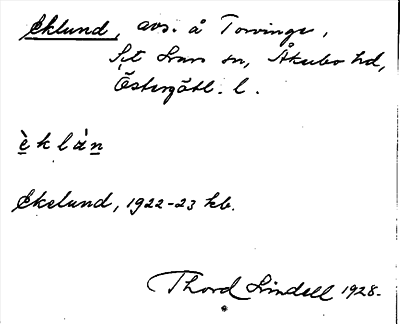 Eklund, avs. å Torvinge,
S:t Lars sn, Åkerbo hd,
Östergötl. l.
è k l á n
Ekelund, 1922-23 kb.
Thord Lindell 1928.